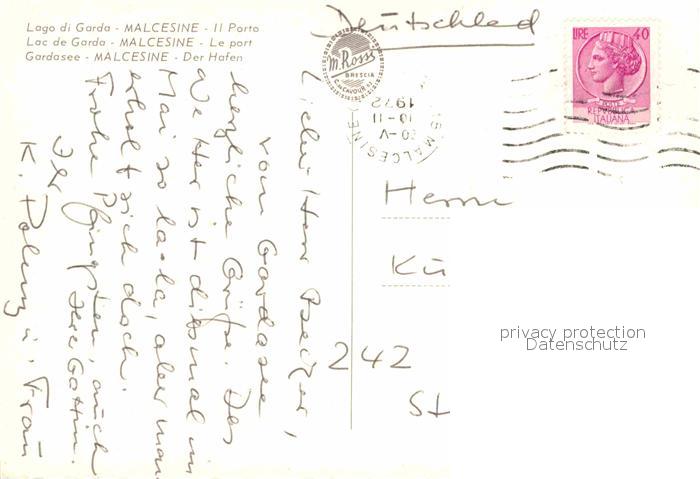 Lago di Garda - MALCESINE - Il Porto
Lac de Garda - MALCESINE - Le port
Gardasee - MALCESINE - Der Hafen
Deutschland
M. ROSSI
BRESCIA
LIRE 40
POSTE
REPVBBLICA
ITALIANA
MALCESINE
20-V
10-11
1972
Lieber Herr
vom Gardasee
herzliche Grüße. Das
Wetter ist diesmal im
Mai so la-la, aber man
erholt sich doch.
Frohe Pfingsten, auch
Ihrer Gattin.
Ihr
K. u. Frau
Herrn
Kü
242
St
privacy protection
Datenschutz